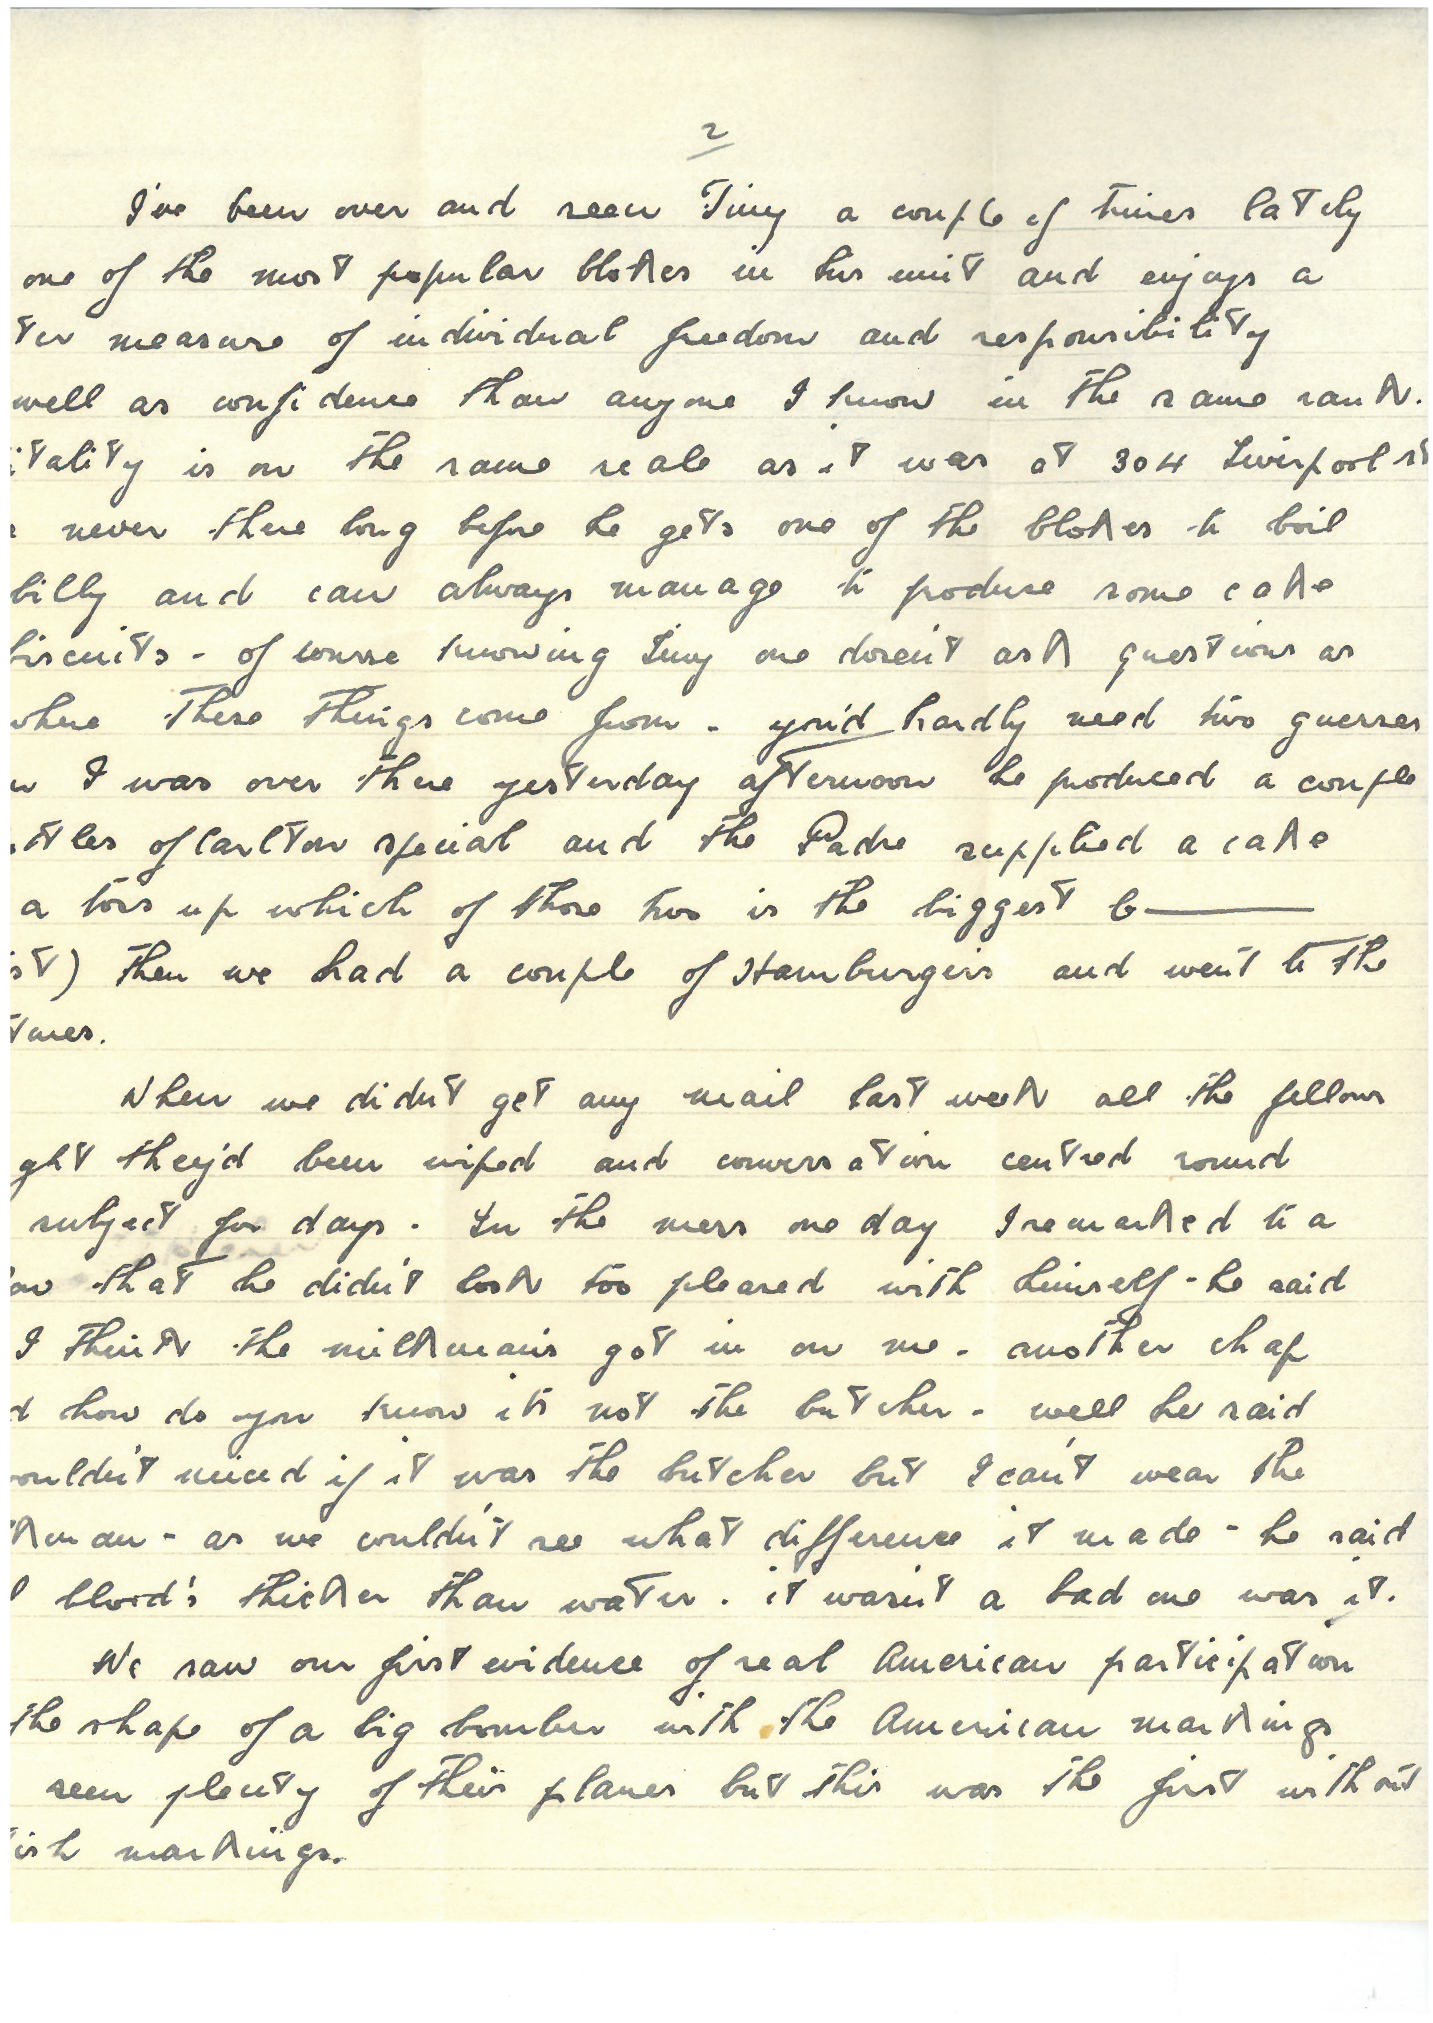 2
I've been over and seen Tiny a couple of times lately
one of the most popular blokes in his unit and enjoys a
ter measure of individual freedom and responsibility
well as confidence than anyone I know in the same rank.
itality is on the same scale as it was at 304 Liverpool st
never there long before he gets one of the blokes to boil
billy and can always manage to produce some cake
biscuits - of course knowing Tiny one doesn't ask questions as
where these things come from - you'd hardly need two guesses
n I was over there yesterday afternoon he produced a couple
ttles of Carlton special and the Padre supplied a cake
a toss up which of those two is the biggest b———
st) then we had a couple of Hamburgers and went to the
tures.
When we didn't get any mail last week all the fellows
ght they'd been wiped and conversation centred round
subject for days. In the mess one day I remarked to a
low that he didn't look too pleased with himself - he said
I think the milkman's got in on me - another chap
d how do you know it's not the butcher - well he said
ouldn't mind if it was the butcher but I can't wear the
kman - as we couldn't see what difference it made - he said
l blood's thicker than water. it wasn't a bad one was it.
We saw our first evidence of real American participation
the shape of a big bomber with the American markings
seen plenty of their planes but this was the first without
tish markings.